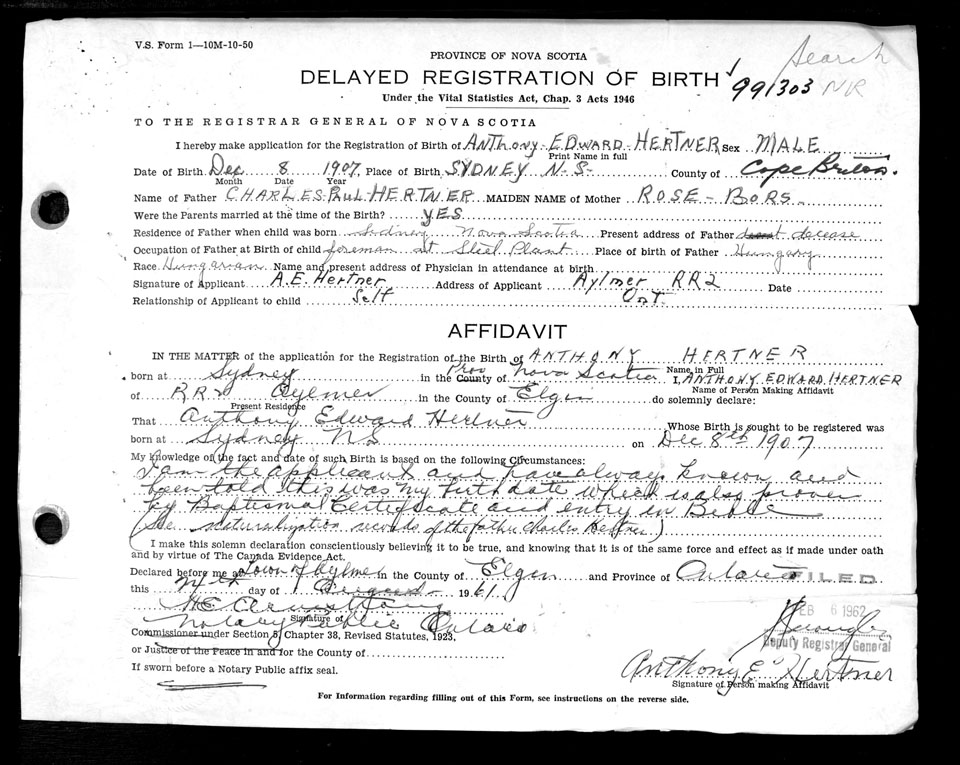 V.S. Form 1—10M-10-50
Search
PROVINCE OF NOVA SCOTIA
DELAYED REGISTRATION OF BIRTH
991303 NR
Under the Vital Statistics Act, Chap. 3 Acts 1946
TO THE REGISTRAR GENERAL OF NOVA SCOTIA
I hereby make application for the Registration of Birth of ANThony EDWARD HERTNER Sex MALE
Print Name in full
Date of Birth Dec 8 1907 Place of Birth SYDNEY N.S. County of Cape Breton.
Month Date Year
Name of Father CHARLES PAUL HERTNER MAIDEN NAME of Mother ROSE - BORS
Were the Parents married at the time of the Birth? YES
Residence of Father when child was born Sidney Nova Scotia Present address of Father decease
Occupation of Father at Birth of child foreman at Steel Plant Place of birth of Father Hungary
Race Hungarian Name and present address of Physician in attendance at birth
Signature of Applicant A.E. Hertner Address of Applicant Aylmer RR2 Date
Relationship of Applicant to child Self Ont.
AFFIDAVIT
IN THE MATTER of the application for the Registration of the Birth of ANTHONY HERTNER
Name in Full
born at Sydney in the Prov County of Nova Scotia I, ANTHONY EDWARD HERTNER
Name of Person Making Affidavit
of RR2 Aylmer in the County of Elgin do solemnly declare:
Present Residence
That Anthony Edward Hertner Whose Birth is sought to be registered was
born at Sydney NS on Dec 8th 1907
My knowledge of the fact and date of such Birth is based on the following Circumstances:
I am the applicant and have always known and
been told this was my birthdate which is also proven
by Baptismal Certificate and entry in Bible
(See naturalization records of the father Charles Hertner)
I make this solemn declaration conscientiously believing it to be true, and knowing that it is of the same force and effect as if made under oath
and by virtue of The Canada Evidence Act.
Declared before me at Town of Aylmer in the County of Elgin and Province of Ontario
FILED
this 24th day of August 1961
FEB 6 1962
H E Armstrong
Signature of
Notary Public Ontario
Deputy Registrar General
Commissioner under Section 5, Chapter 38, Revised Statutes, 1923,
or Justice of the Peace in and for the County of
Anthony E. Hertner
If sworn before a Notary Public affix seal.
Signature of Person making Affidavit
For Information regarding filling out of this Form, see instructions on the reverse side.